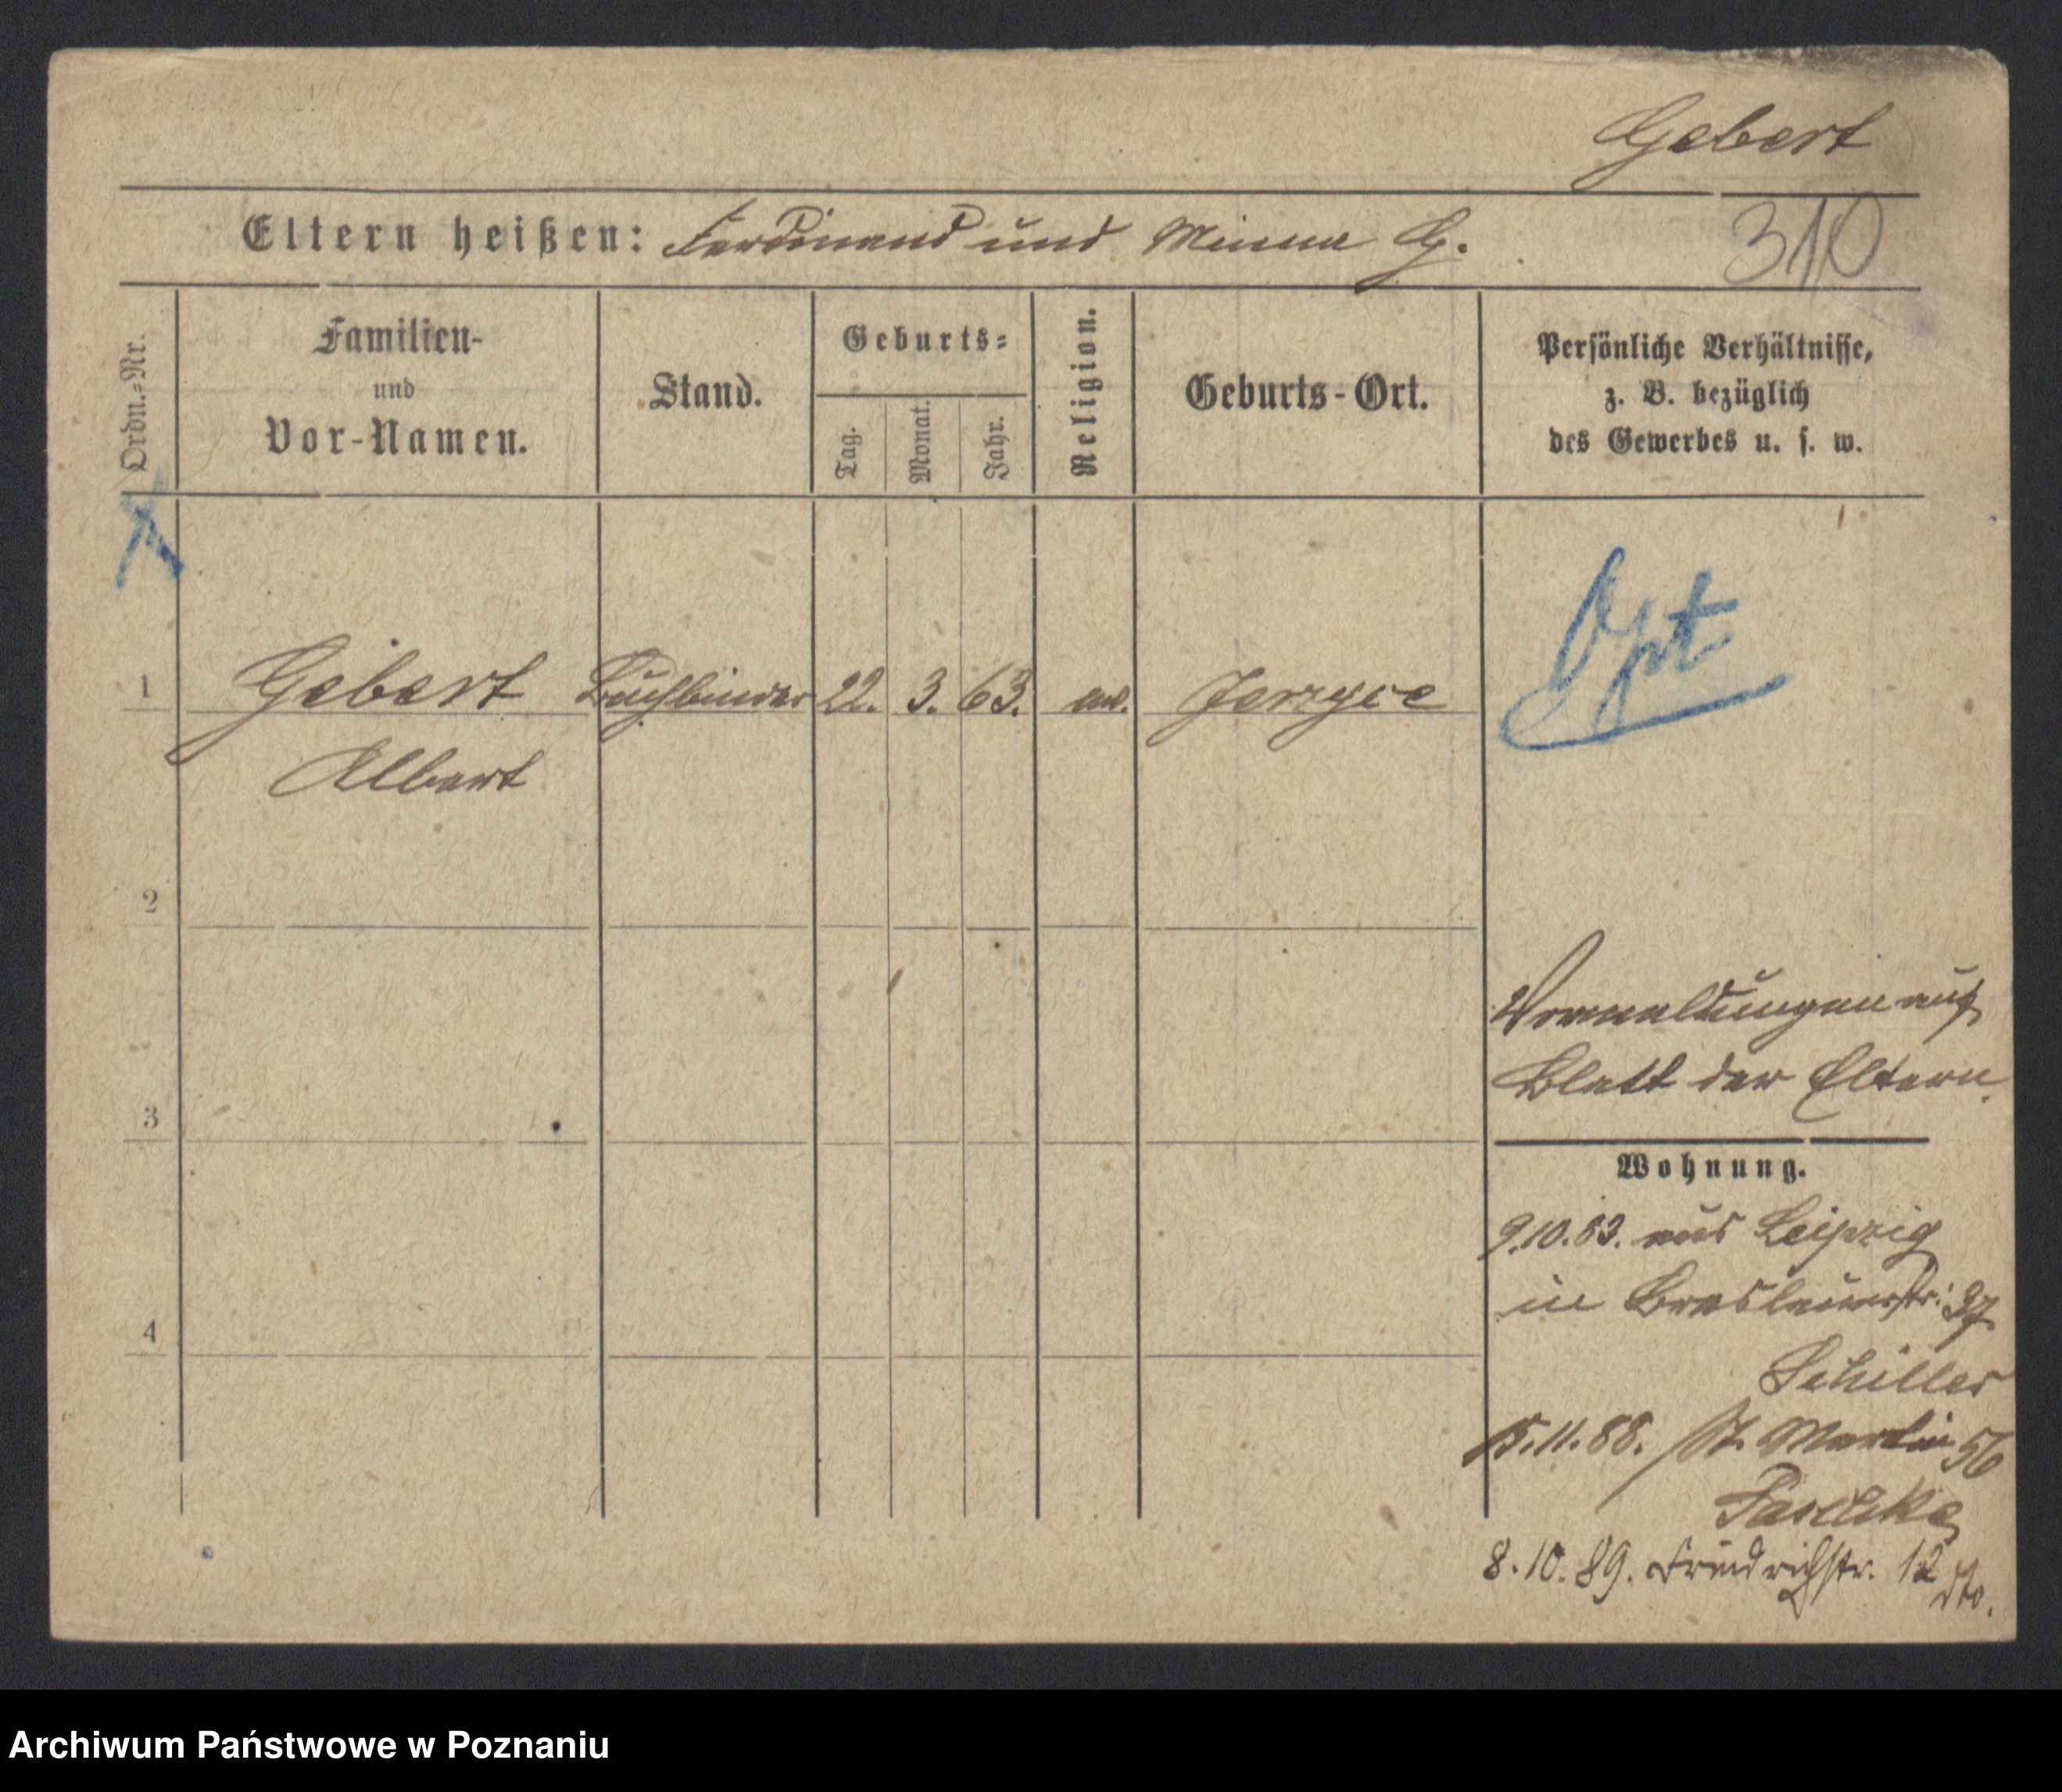 Gebert
Eltern heißen: Ferdinand und Minna G.
310
Ordn.-Nr.
Familien-
und
Vor-Namen.
Stand.
Geburts-
Tag.
Monat.
Jahr.
Religion.
Geburts-Ort.
Persönliche Verhältnisse,
z. B. bezüglich
des Gewerbes u. s. w.
Opt
1 Gebert Buchbinder 22. 3. 63. ev. Jerzyce
Albert
2
Vormeldungen auf
Blatt der Eltern.
3
Wohnung.
9.10.83. aus Leipzig
in Breslauerstr. 37
4
Schiller
15.11.88. St. Martin 56
8.10.89. Friedrichstr. 12
dto.
Archiwum Państwowe w Poznaniu